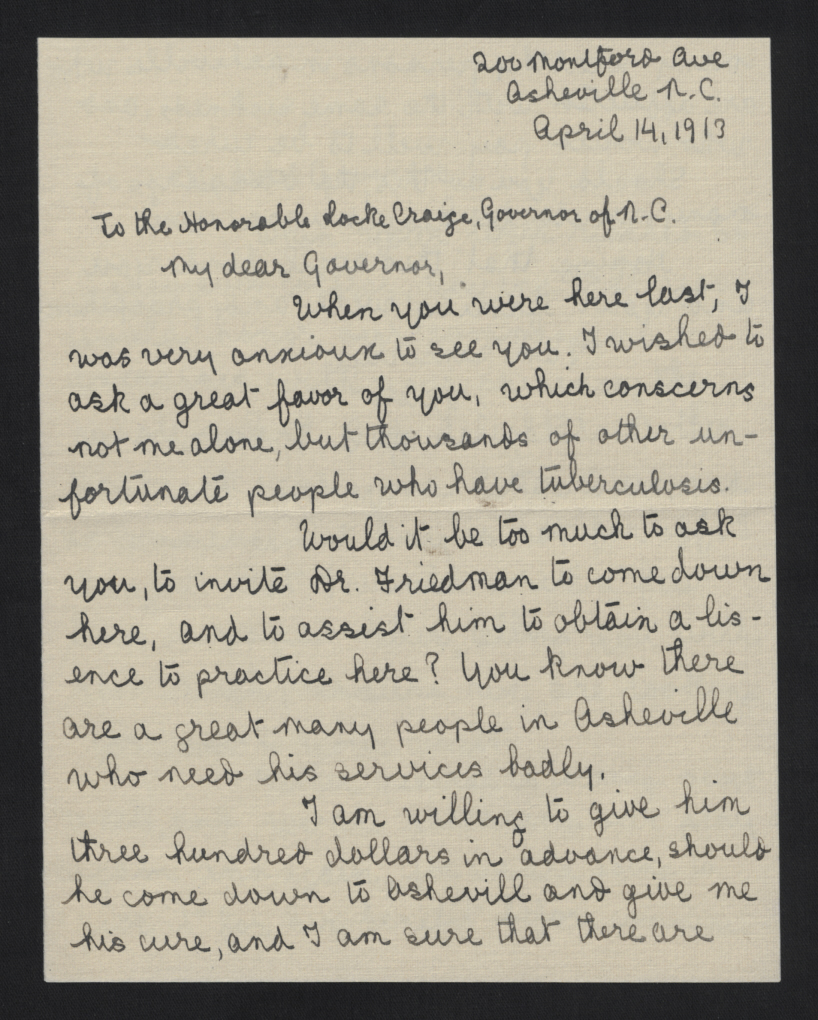 200 Montford Ave
Asheville N.C.
April 14, 1913
To the Honorable Locke Craige, Governor of N.C.
My dear Governor,
When you were here last, I
was very anxioux to see you. I wished to
ask a great favor of you, which conscerns
not me alone, but thousands of other un-
fortunate people who have tuberculosis.
Would it be too much to ask
you, to invite Dr. Friedman to come down
here, and to assist him to obtain a lis-
ence to practice here? You know there
are a great many people in Asheville
who need his services badly.
I am willing to give him
three hundred dollars in advance, should
he come down to Ashevill and give me
his cure, and I am sure that there are